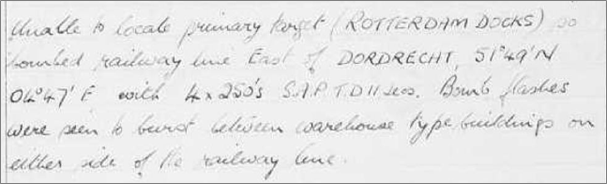 Unable to locate primary target (ROTTERDAM DOCKS) so
bombed railway line East of DORDRECHT, 51°49'N
04°47'E with 4x250's S.A.P. T.D 11 secs. Bomb flashes
were seen to burst between warehouse type buildings on
either side of the railway line.